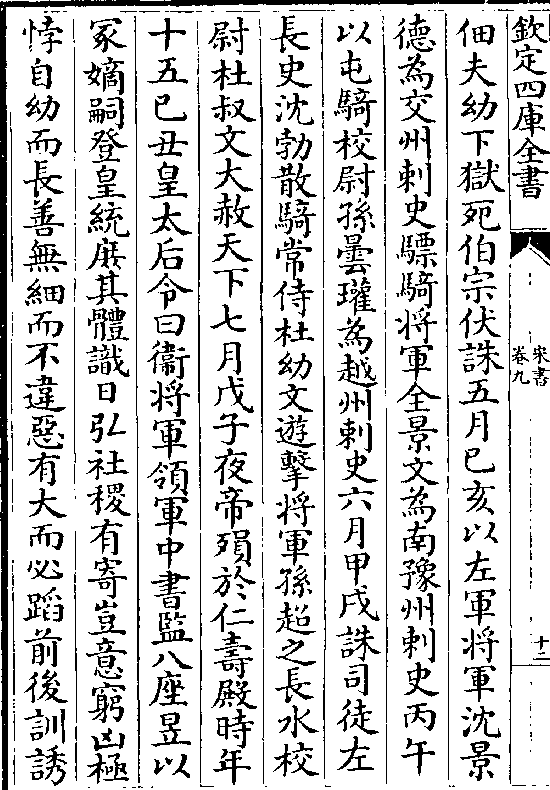 欽定四庫全書
宋書
卷九
十二
佃夫幼下獄死伯宗伏誅五月已亥以左軍将軍沈景
德為交州刺史驃騎将軍全景文為南豫州刺史丙午
以屯騎校尉孫曇瓘為越州刺史六月甲戌誅司徒左
長史沈勃散騎常侍杜幼文遊擊将軍孫超之長水校
尉杜叔文大赦天下七月戊子夜帝殞於仁壽殿時年
十五已丑皇太后令曰衞将軍領軍中書監八座昱以
冢嫡嗣登皇統庶其體識日弘社稷有寄豈意窮凶極
悖自幼而長善無細而不違惡有大而必蹈前後訓誘